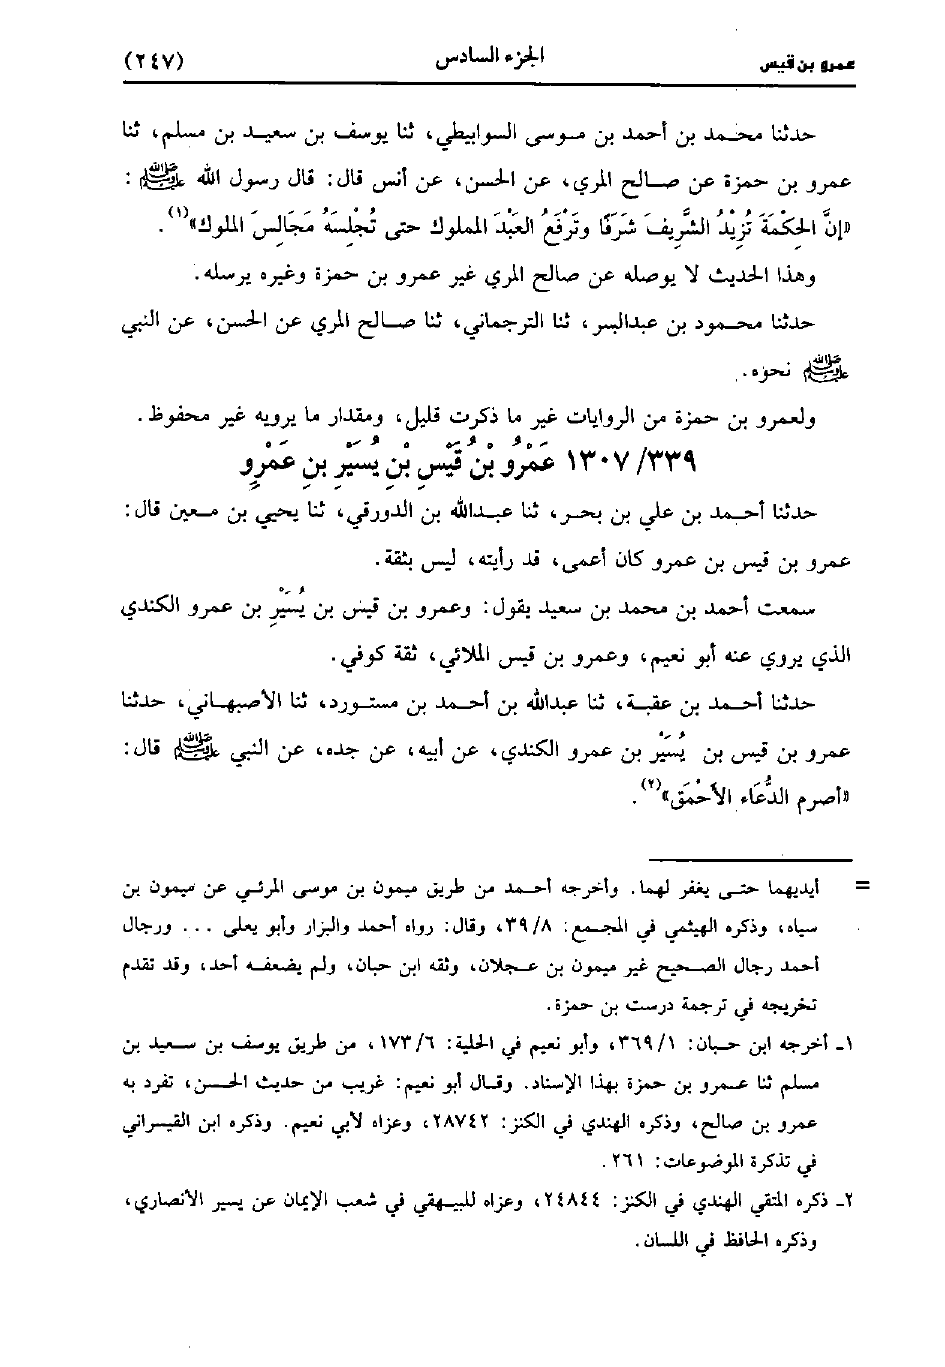 عمرو بن قيس الجزء السادس (٢٤٧)
حدثنا محمد بن أحمد بن موسى السوابيطي، ثنا يوسف بن سعيد بن مسلم، ثنا
عمرو بن حمزة عن صالح المري، عن الحسن، عن أنس قال: قال رسول الله ﷺ :
«إنَّ الحِكْمَةَ تَزِيْدُ الشَّرِيفَ شَرَفًا وتَرْفَعُ العَبْدَ المملوك حتى تُجْلِسَهُ مَجَالِسَ الملوك»(١).
وهذا الحديث لا يوصله عن صالح المري غير عمرو بن حمزة وغيره يرسله.
حدثنا محمود بن عبدالبر، ثنا الترجماني، ثنا صالح المري عن الحسن، عن النبي
ﷺ نحوه.
ولعمرو بن حمزة من الروايات غير ما ذكرت قليل، ومقدار ما يرويه غير محفوظ.
١٣٠٧/٣٣٩ عَمْرُو بْنُ قَيْسِ بْنِ يُسَيْرِ بنِ عَمْرٍو
حدثنا أحمد بن علي بن بحر، ثنا عبدالله بن الدورقي، ثنا يحيى بن معين قال:
عمرو بن قيس بن عمرو كان أعمى، قد رأيته، ليس بثقة.
سمعت أحمد بن محمد بن سعيد يقول: وعمرو بن قيس بن يُسَيْرِ بن عمرو الكندي
الذي يروي عنه أبو نعيم، وعمرو بن قيس الملائي، ثقة كوفي.
حدثنا أحمد بن عقبة، ثنا عبدالله بن أحمد بن مستورد، ثنا الأصبهاني، حدثنا
عمرو بن قيس بن يُسَيْرِ بن عمرو الكندي، عن أبيه، عن جده، عن النبي ﷺ قال:
«أصرم الدُّعَاء الأَحْمَق»(٢).
= أيديهما حتى يغفر لهما. وأخرجه أحمد من طريق ميمون بن موسى المرئي عن ميمون بن
سياه، وذكره الهيثمي في المجمع: ٣٩/٨، وقال: رواه أحمد والبزار وأبو يعلى ... ورجال
أحمد رجال الصحيح غير ميمون بن عجلان، وثقه ابن حبان، ولم يضعفه أحد، وقد تقدم
تخريجه في ترجمة درست بن حمزة.
١ـ أخرجه ابن حبان: ٣٦٩/١، وأبو نعيم في الحلية: ١٧٣/٦، من طريق يوسف بن سعيد بن
مسلم ثنا عمرو بن حمزة بهذا الإسناد. وقال أبو نعيم: غريب من حديث الحسن، تفرد به
عمرو بن صالح، وذكره الهندي في الكنز: ٢٨٧٤٢، وعزاه لأبي نعيم. وذكره ابن القيسراني
في تذكرة الموضوعات: ٢٦١.
٢ـ ذكره المتقي الهندي في الكنز: ٢٤٨٤٤، وعزاه للبيهقي في شعب الإيمان عن يسير الأنصاري،
وذكره الحافظ في اللسان.